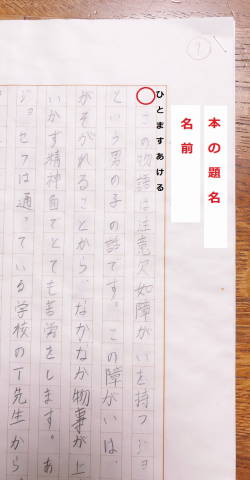 本の題名
名前
ひとますあける
この物語は注意欠如障がいを持つジョ
という男の子の話です。この障がいは、
がそがれることから、なかなか物事が上
いかず精神面でとても苦労をします。あ
ジョセフは通っている学校のT先生から